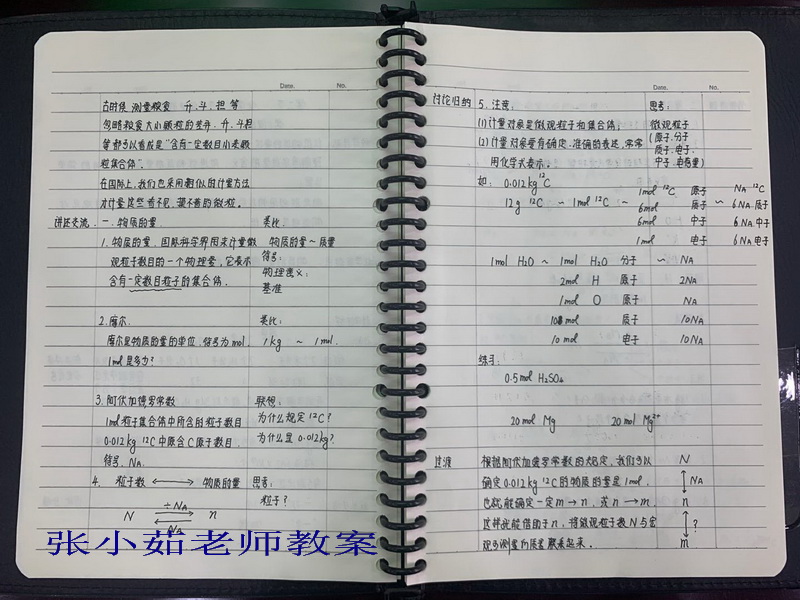 Date. No.
古时候 测量粮食 升、斗、担 等
忽略粮食大小颗粒的差异, 升、斗、担
等都可以看成是“含有一定数目小米颗
粒集合体”.
在国际上, 我们也采用类似的计量方法
对计量这些看不见, 摸不着的微粒。
讲述交流. 一. 物质的量. 类比:
1. 物质的量, 国际科学界用来计量微 物质的量~质量
观粒子数目的一个物理量, 它表示 符号:
含有一定数目粒子的集合体. 物理意义:
基准
2. 摩尔. 类比:
摩尔是物质的量的单位. 符号为mol. 1kg ~ 1mol.
1mol是多少?
3. 阿伏加德罗常数 联想:
1mol粒子集合体中所含的粒子数目 为什么规定 ¹²C?
0.012kg ¹²C中原含C原子数目. 为什么是0.012kg?
符号. NA.
4. 粒子数 ⟷ 物质的量 思考:
粒子?
÷NA
N ⇌ n
NA
张小茹老师教案
Date. No.
讨论归纳 5. 注意: 思考:
(1)计量对象是微观粒子和集合体; 微观粒子
(2)计量对象要有确定、准确的表述, 常常 (原子.分子
用化学式表示. 质子.电子.
中子.
如: 0.012kg ¹²C
12g ¹²C ~ 1mol ¹²C ~ 1mol ¹²C 原子 NA ¹²C
6mol 质子 ~ 6NA 质子
6mol 中子 6NA 中子
1mol 电子 6NA 电子
1mol H₂O ~ 1mol H₂O 分子 ~ NA
2mol H 原子 2NA
1mol O 原子 NA
10mol 质子 10NA
10mol 电子 10NA
练习:
0.5mol H₂SO₄
20mol Mg 20mol Mg²⁺
过渡 根据阿伏加德罗常数的规定, 我们可以 N
确定0.012kg ¹²C的物质的量是1mol, ↕ NA
也就能确定一定m→n, 或n→m. n
这样就能借助于n, 将微观粒子数N与宏 ↕ ?
观可测量的质量联系起来. m